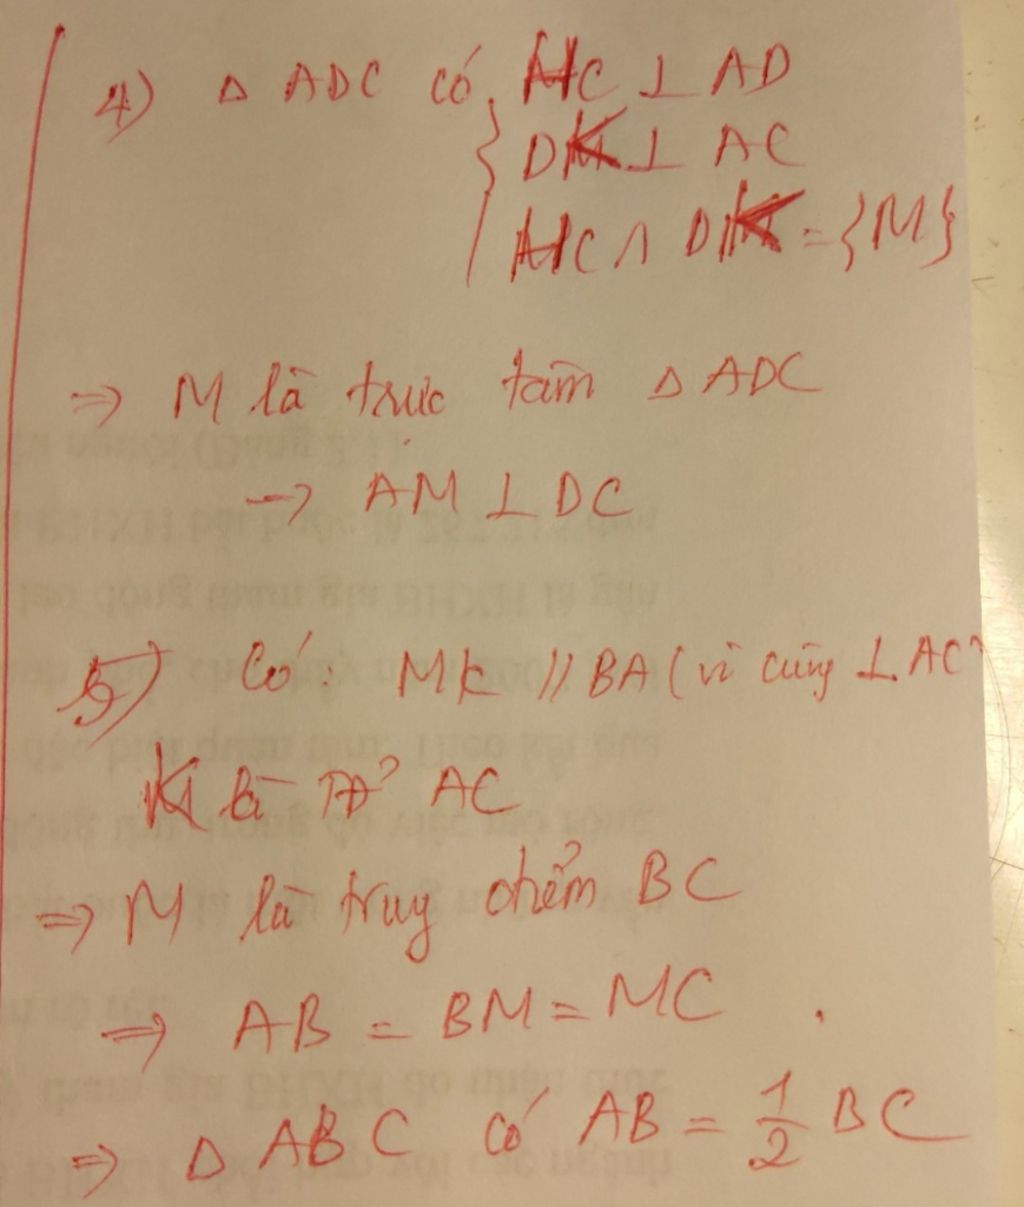 4) Δ ADC có HC ⊥ AD
DK ⊥ AC
HC ∩ DK = {M}
⇒ M là trực tâm Δ ADC
→ AM ⊥ DC
5) Có: MK // BA (vì cùng ⊥ AC
K là TĐ AC
⇒ M là trung điểm BC
⇒ AB = BM = MC.
⇒ Δ ABC có AB = 1/2 BC